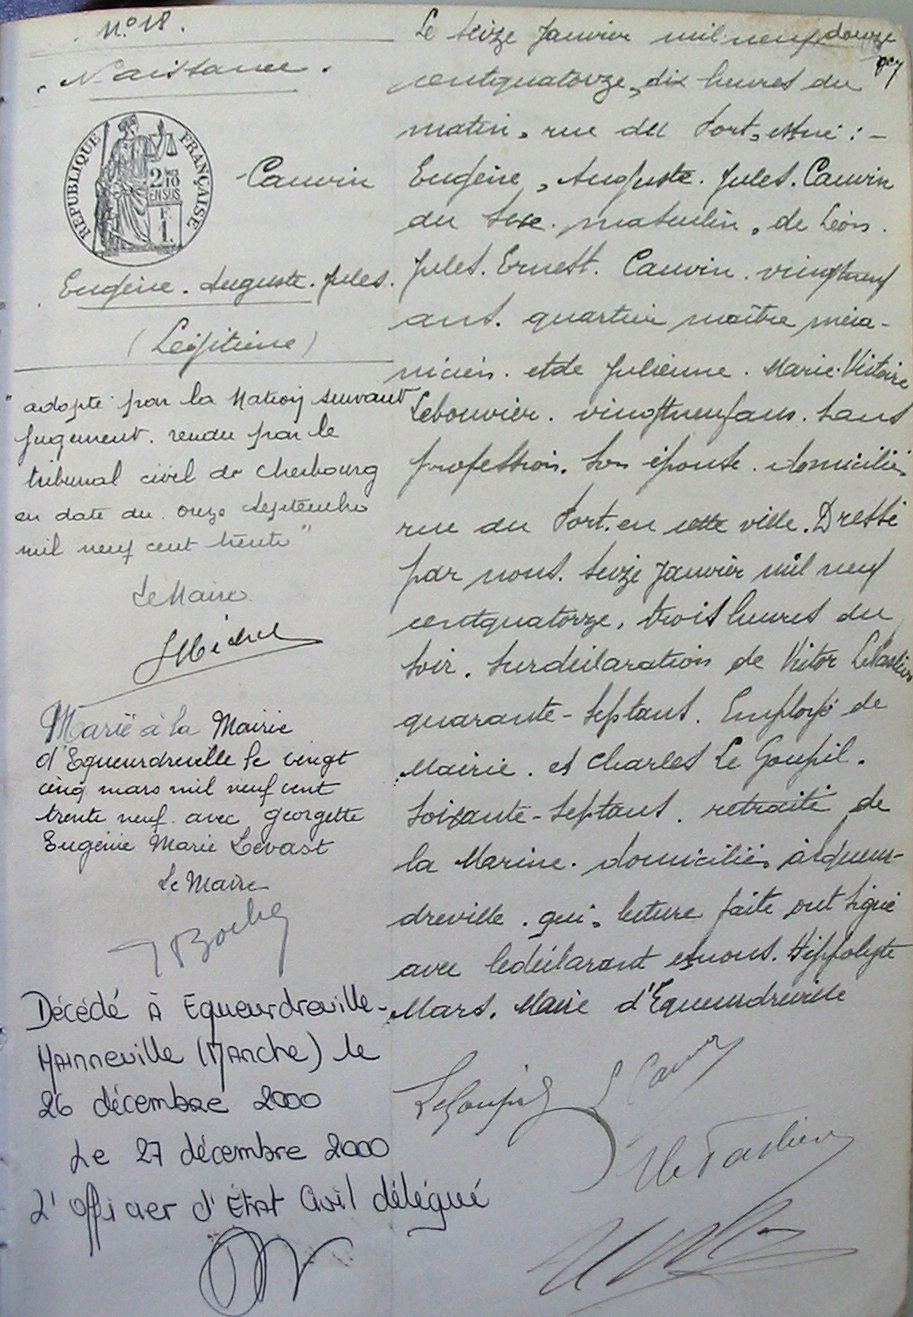 N.° 18.
Naissance.
RÉPUBLIQUE FRANÇAISE
2/10
EN SUS
F.
1.
Cauvin
Eugène. Auguste. Jules.
(Légitime)
"adopté par la Nation suivant
jugement. rendu par le
tribunal civil de Cherbourg
en date du. onze Septembre
mil neuf cent trente"
Le Maire
Marié à la Mairie
d'Equeurdreville le vingt
cinq mars mil neuf cent
trente neuf. avec georgette
Eugénie Marie Levast
Le Maire
Décédé à Equeurdreville-
Hainneville (Manche) le
26 décembre 2000
Le 27 décembre 2000
L'officier d'État Civil délégué
Le seize Janvier mil neuf douze
centquatorze, dix heures du
matin, rue du Port, est né :-
Eugène, Auguste. Jules. Cauvin
du sexe. masculin, de Léon.
Jules. Ernest. Cauvin. vingtneuf
ans. quartier maître méca-
nicien. et de Julienne. Marie. Victoire
Lebouvier. vingtneufans. sans
profession. son épouse. domiciliés
rue du Port. en cette ville. Dressé
par nous. seize Janvier mil neuf
centquatorze, trois heures du
soir. sur déclaration de Victor
quarante-septans. Employé de
Mairie. et Charles Le Goupil.
soixante-septans. retraité de
la Marine. domiciliés à Equeur-
dreville. qui, lecture faite ont signé
avec le déclarant et nous. Hippolyte
Mars. Maire d'Equeurdreville
LeGoupil L Cauvin